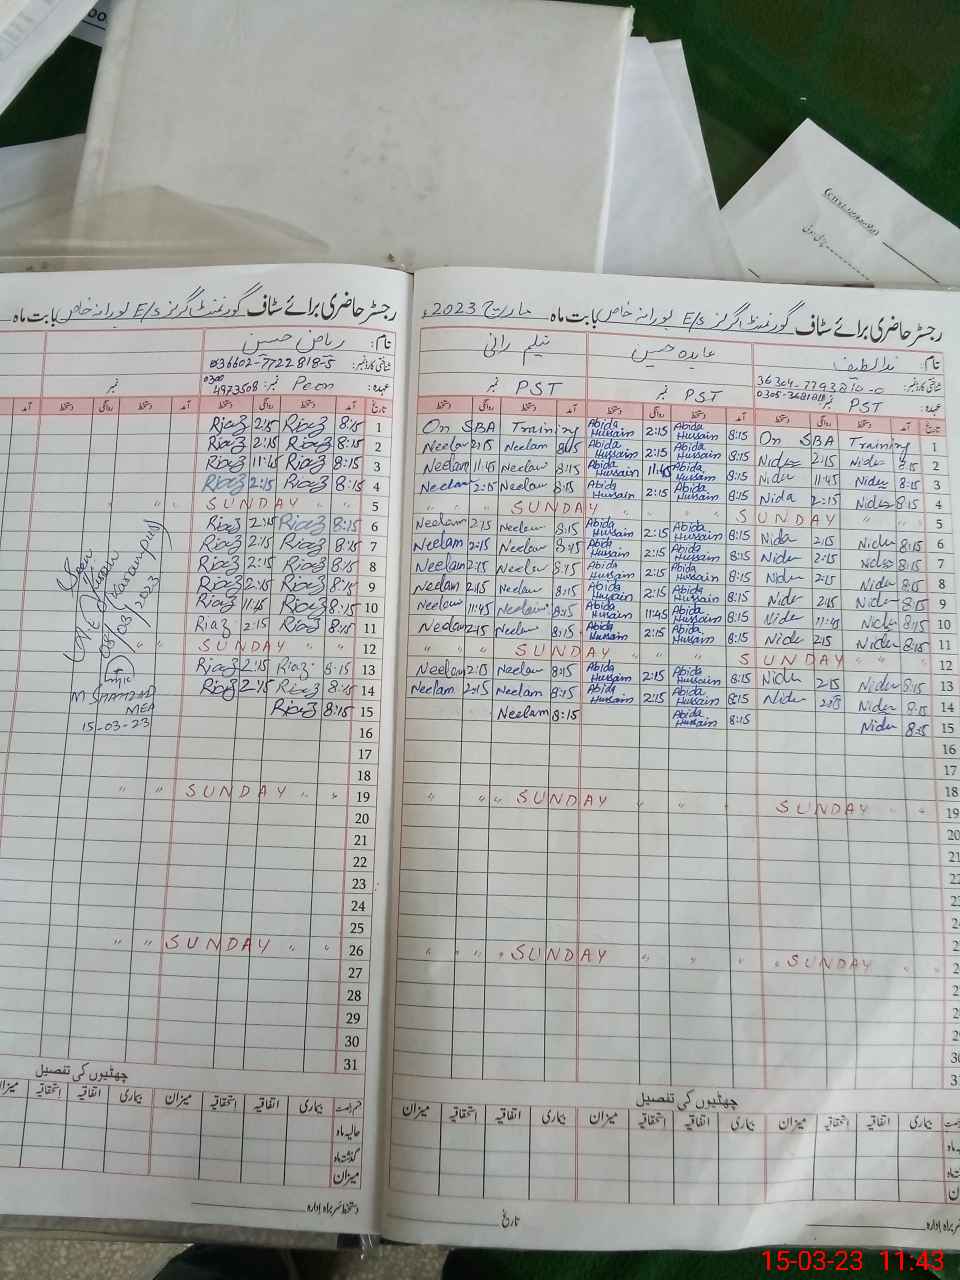 رجسٹر حاضری برائے سٹاف گورنمنٹ گرلز E/S پورانہ خاص بابت ماہ مارچ 2023ء
نام: ندا لطیف عابدہ حسین نیلم رانی
شناختی کارڈ نمبر:
عہدہ: PST نمبر PST نمبر PST نمبر
تاریخ آمد دستخط روانگی دستخط آمد دستخط روانگی دستخط آمد دستخط روانگی دستخط
1 On SBA Training 8:15 Abida Hussain 2:15 Abida Hussain On SBA Training
2 8:15 Nida 2:15 Nida 8:15 Abida Hussain 2:15 Abida Hussain 8:15 Neelam 2:15 Neelam
3 8:15 Nida 11:45 Nida 8:15 Abida Hussain 11:45 Abida Hussain 8:15 Neelam 11:45 Neelam
4 8:15 Nida 2:15 Nida 8:15 Abida Hussain 2:15 Abida Hussain 8:15 Neelam 2:15 Neelam
5 SUNDAY SUNDAY
6 8:15 Nida 2:15 Nida 8:15 Abida Hussain 2:15 Abida Hussain 8:15 Neelam 2:15 Neelam
7 8:15 Nida 2:15 Nida 8:15 Abida Hussain 2:15 Abida Hussain 8:15 Neelam 2:15 Neelam
8 8:15 Nida 2:15 Nida 8:15 Abida Hussain 2:15 Abida Hussain 8:15 Neelam 2:15 Neelam
9 8:15 Nida 2:15 Nida 8:15 Abida Hussain 2:15 Abida Hussain 8:15 Neelam 2:15 Neelam
10 8:15 Nida 11:45 Nida 8:15 Abida Hussain 11:45 Abida Hussain 8:15 Neelam 11:45 Neelam
11 8:15 Nida 2:15 Nida 8:15 Abida Hussain 2:15 Abida Hussain 8:15 Neelam 2:15 Neelam
12 SUNDAY SUNDAY
13 8:15 Nida 2:15 Nida 8:15 Abida Hussain 2:15 Abida Hussain 8:15 Neelam 2:15 Neelam
14 8:15 Nida 2:15 Nida 8:15 Abida Hussain 2:15 Abida Hussain 8:15 Neelam 2:15 Neelam
15 8:15 Nida 8:15 Abida Hussain 8:15 Neelam
16
17
18
19 SUNDAY SUNDAY
20
21
22
23
24
25
SUNDAY SUNDAY
چھٹیوں کی تفصیل
بیماری اتفاقیہ استحقاقیہ میزان بیماری اتفاقیہ استحقاقیہ میزان بیماری اتفاقیہ استحقاقیہ میزان
تاریخ
رجسٹر حاضری برائے سٹاف گورنمنٹ گرلز E/S پورانہ خاص بابت ماہ
نام: ریاض حسین
شناختی کارڈ نمبر: 36602-7722818-5
عہدہ: Peon نمبر: 0300 4973508 نمبر
تاریخ آمد دستخط روانگی دستخط آمد دستخط روانگی دستخط آمد
1 8:15 Riaz 2:15 Riaz
2 8:15 Riaz 2:15 Riaz
3 8:15 Riaz 11:45 Riaz
4 8:15 Riaz 2:15 Riaz
5 SUNDAY
6 8:15 Riaz 2:15 Riaz
7 8:15 Riaz 2:15 Riaz
8 8:15 Riaz 2:15 Riaz
9 8:15 Riaz 2:15 Riaz
10 8:15 Riaz 11:45 Riaz
11 8:15 Riaz 2:15 Riaz
12 SUNDAY
13 8:15 Riaz 2:15 Riaz
14 8:15 Riaz 2:15 Riaz
15 8:15 Riaz
16
17
18
19 SUNDAY
20
21
22
23
24
25
26 SUNDAY
27
28
29
30
31
Seen
08/03/2023
MEA
15-03-23
چھٹیوں کی تفصیل
بیماری اتفاقیہ استحقاقیہ میزان بیماری اتفاقیہ استحقاقیہ میزان
حالیہ ماہ
گذشتہ ماہ
میزان
دستخط سربراہ ادارہ
15-03-23 11:43